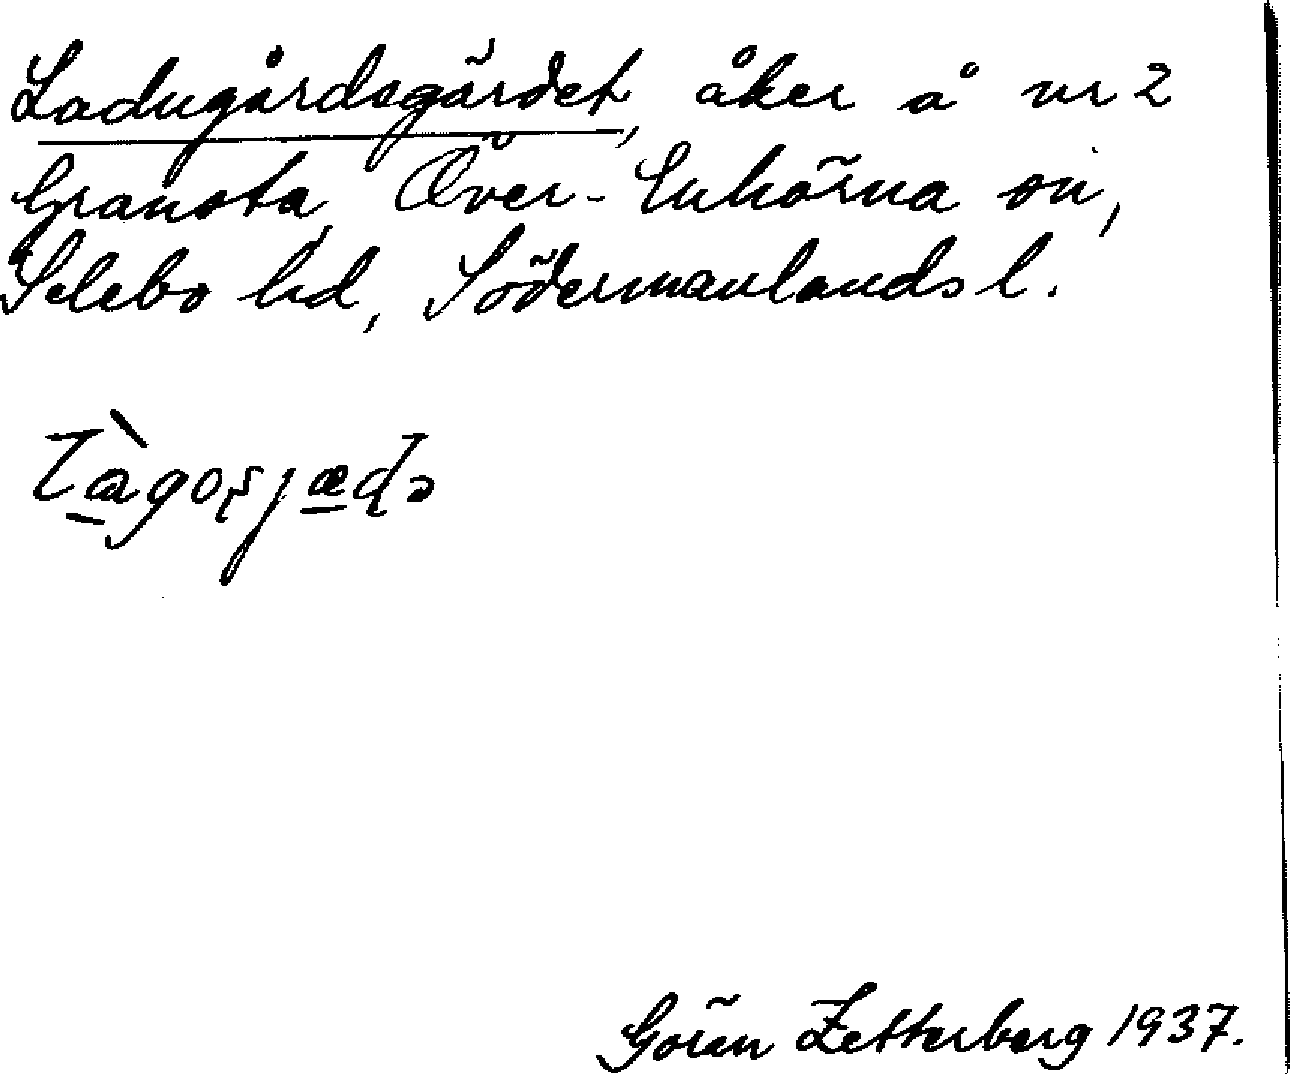 Ladugårdsgärdet, åker å nr 2
Gransta, Över-Enhörna sn,
Selebo hd, Södermanlands l.
Göran Zetterberg 1937.